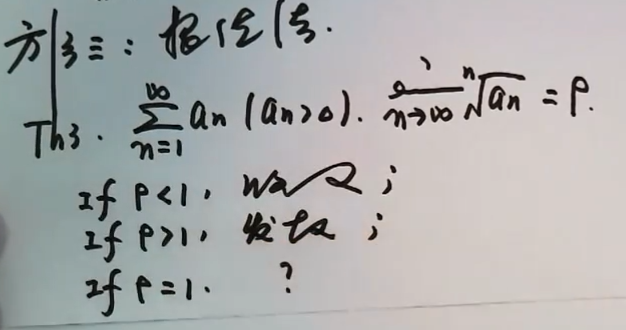 方法三: 根值法.
Th3. ∑_{n=1}^{∞} an (an>0). lim_{n→∞} ⁿ√an = ρ.
If ρ<1, 收敛;
If ρ>1, 发散;
If ρ=1. ?